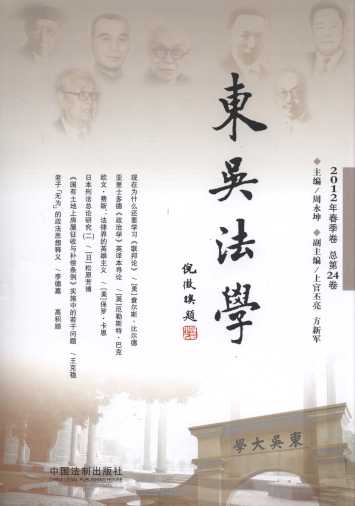 東吴法學
倪徵𣋉題
2012年春季卷 总第24卷
◆主编/周永坤 ◆副主编/上官丕亮 方新军
现在为什么还要学习《联邦论》 /[美]查尔斯·比尔德
亚里士多德《政治学》英译本导论 /[英]厄勒斯特·巴克
欧文·费斯:法律界的英雄主义 /[美]保罗·卡恩
日本刑法总论研究(二) /[日]松原芳博
《国有土地上房屋征收与补偿条例》实施中的若干问题 /王克稳
老子「无为」的政法思想释义 /李德嘉 高积顺
學大吴東
中国法制出版社
CHINA LEGAL PUBLISHING HOUSE